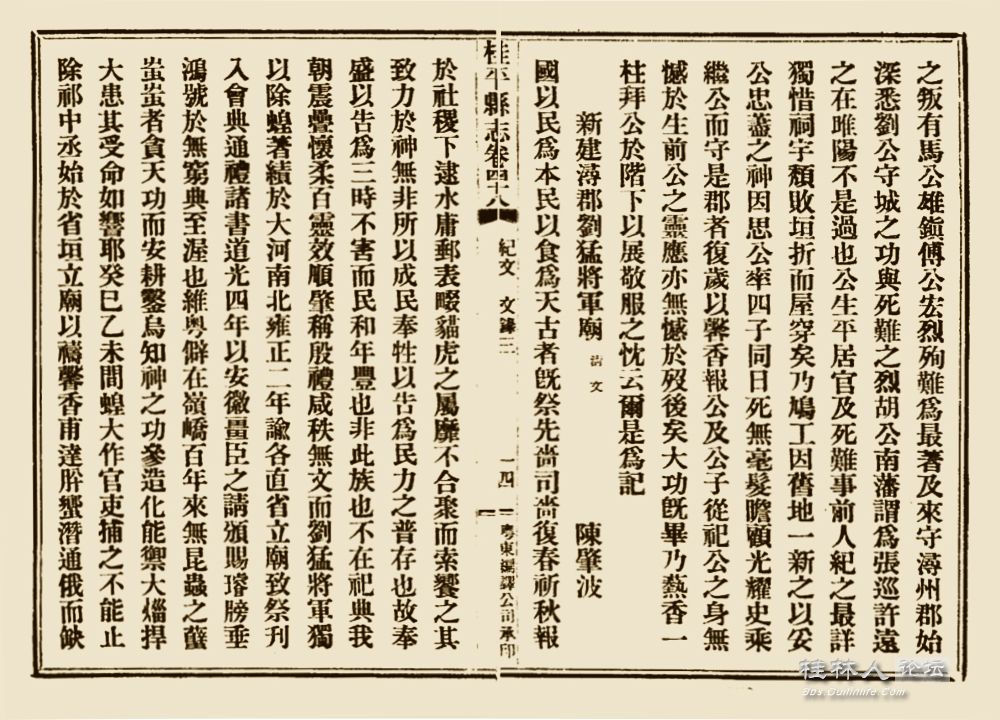 之叛有馬公雄鎮傅公宏烈殉難爲最著及來守潯州郡始
深悉劉公守城之功與死難之烈胡公南藩謂爲張巡許遠
之在睢陽不是過也公生平居官及死難事前人紀之最詳
獨惜祠宇頽敗垣折而屋穿矣乃鳩工因舊地一新之以妥
公忠藎之神因思公率四子同日死無毫髮瞻顧光耀史乘
繼公而守是郡者復歲以馨香報公及公子從祀公之身無
憾於生前公之靈應亦無憾於歿後矣大功旣畢乃熱香一
柱拜公於階下以展敬服之忱云爾是爲記
新建潯郡劉猛將軍廟 清文 陳肇波
國以民爲本民以食爲天古者旣祭先嗇司嗇復春祈秋報
桂平縣志卷四十八 紀文 文錄三 一四 粵東編譯公司承印
於社稷下逮水庸郵表畷貓虎之屬靡不合聚而索饗之其
致力於神無非所以成民奉牲以告爲民力之普存也故奉
盛以告爲三時不害而民和年豐也非此族也不在祀典我
朝震疊懷柔百靈效順肇稱殷禮咸秩無文而劉猛將軍獨
以除蝗著績於大河南北雍正二年諭各直省立廟致祭刋
入會典通禮諸書道光四年以安徽畺臣之請頒賜璿牓垂
鴻號於無窮典至渥也維粵僻在嶺嶠百年來無昆蟲之蠥
蚩蚩者貪天功而安耕鑿烏知神之功參造化能禦大菑捍
大患其受命如響耶癸巳乙未間蝗大作官吏捕之不能止
除祁中丞始於省垣立廟以禱馨香甫達肸蠁潛通俄而缺
桂林人论坛
bbs.Guilinlife.com